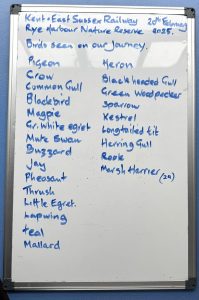 Kent + East Sussex Railway 20th February
Rye Harbour Nature Reserve 2025.
Birds seen on our journey.
Pigeon
Crow
Common Gull
Blackbird
Magpie
Gr. White egret
Mute Swan
Buzzard
Jay
Pheasant
Thrush
Little Egret.
Lapwing
teal
Mallard
Heron
Black headed Gull
Green Woodpecker
Sparrow
Kestrel
Longtailed tit
Herring Gull
Rook
Marsh Harrier (24)